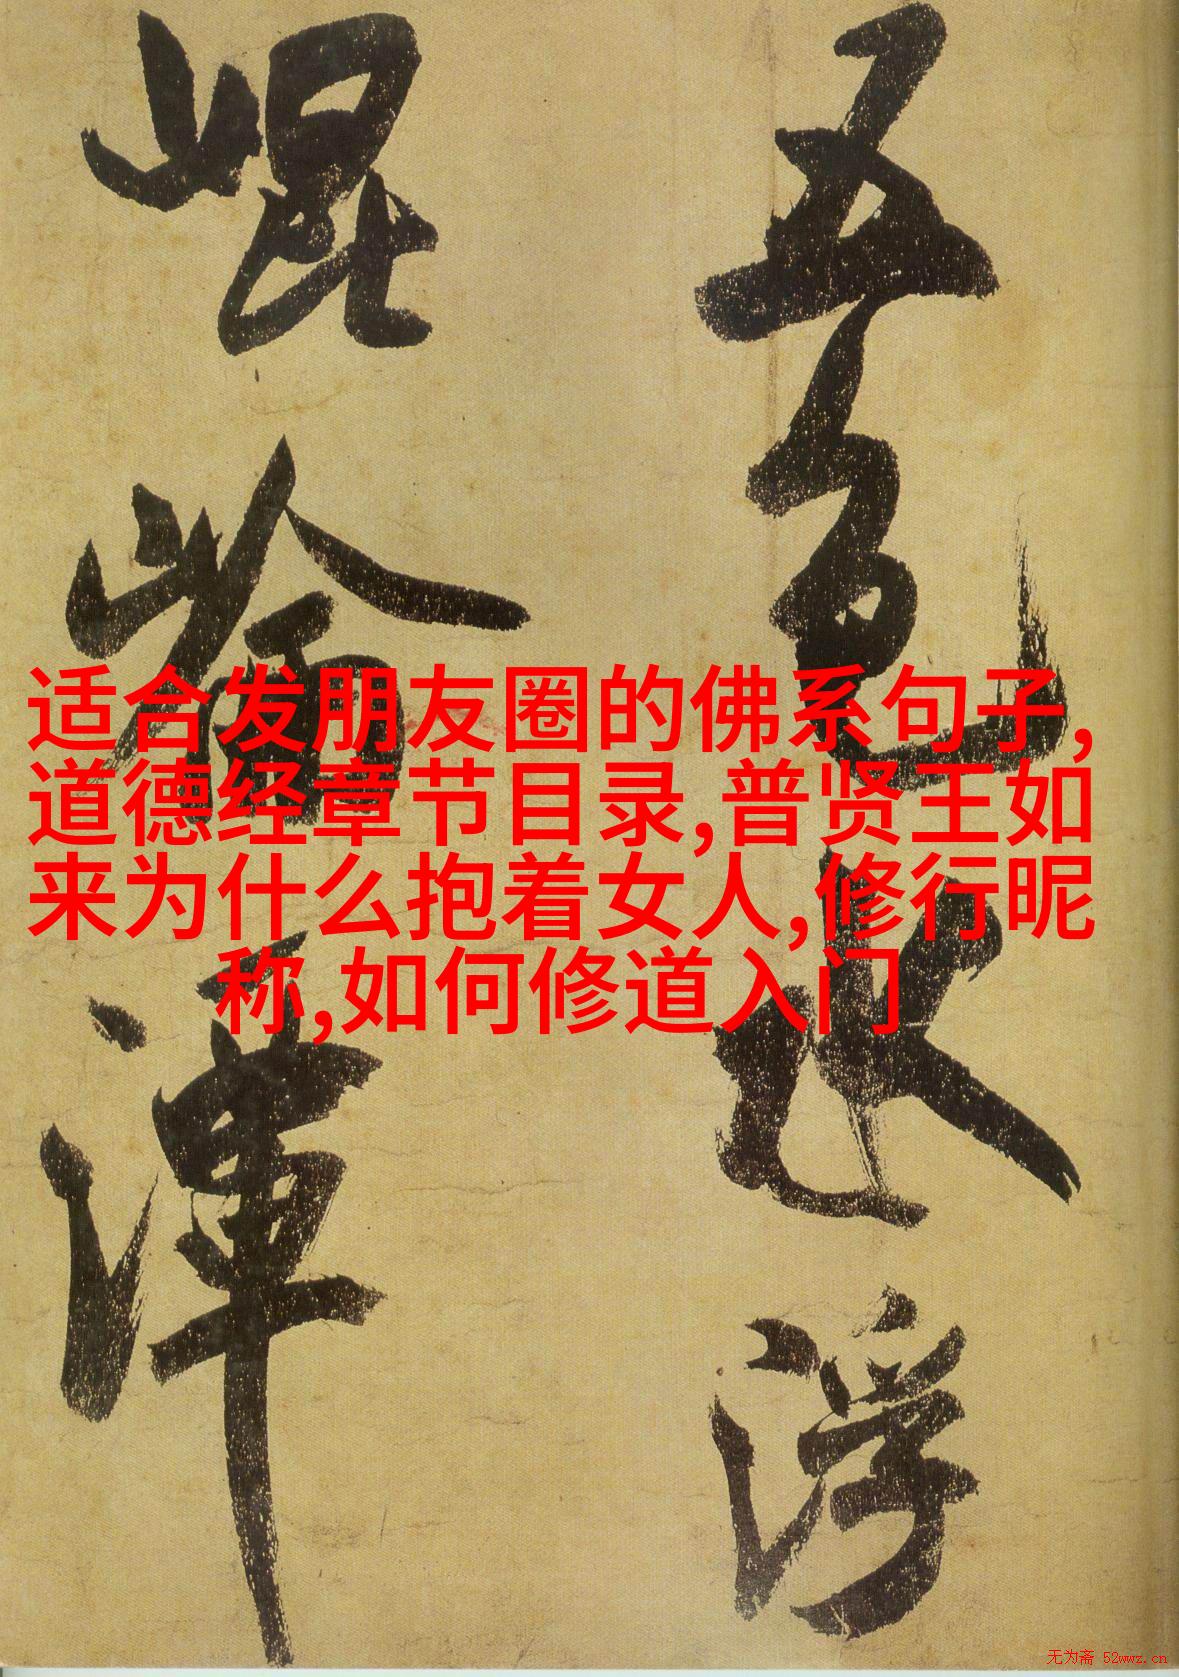 五色水浮
崐崘潭
适合发朋友圈的佛系句子,
道德经章节目录,普贤王如
来为什么抱着女人,修行昵
称,如何修道入门
无为斋 52wwz.cn